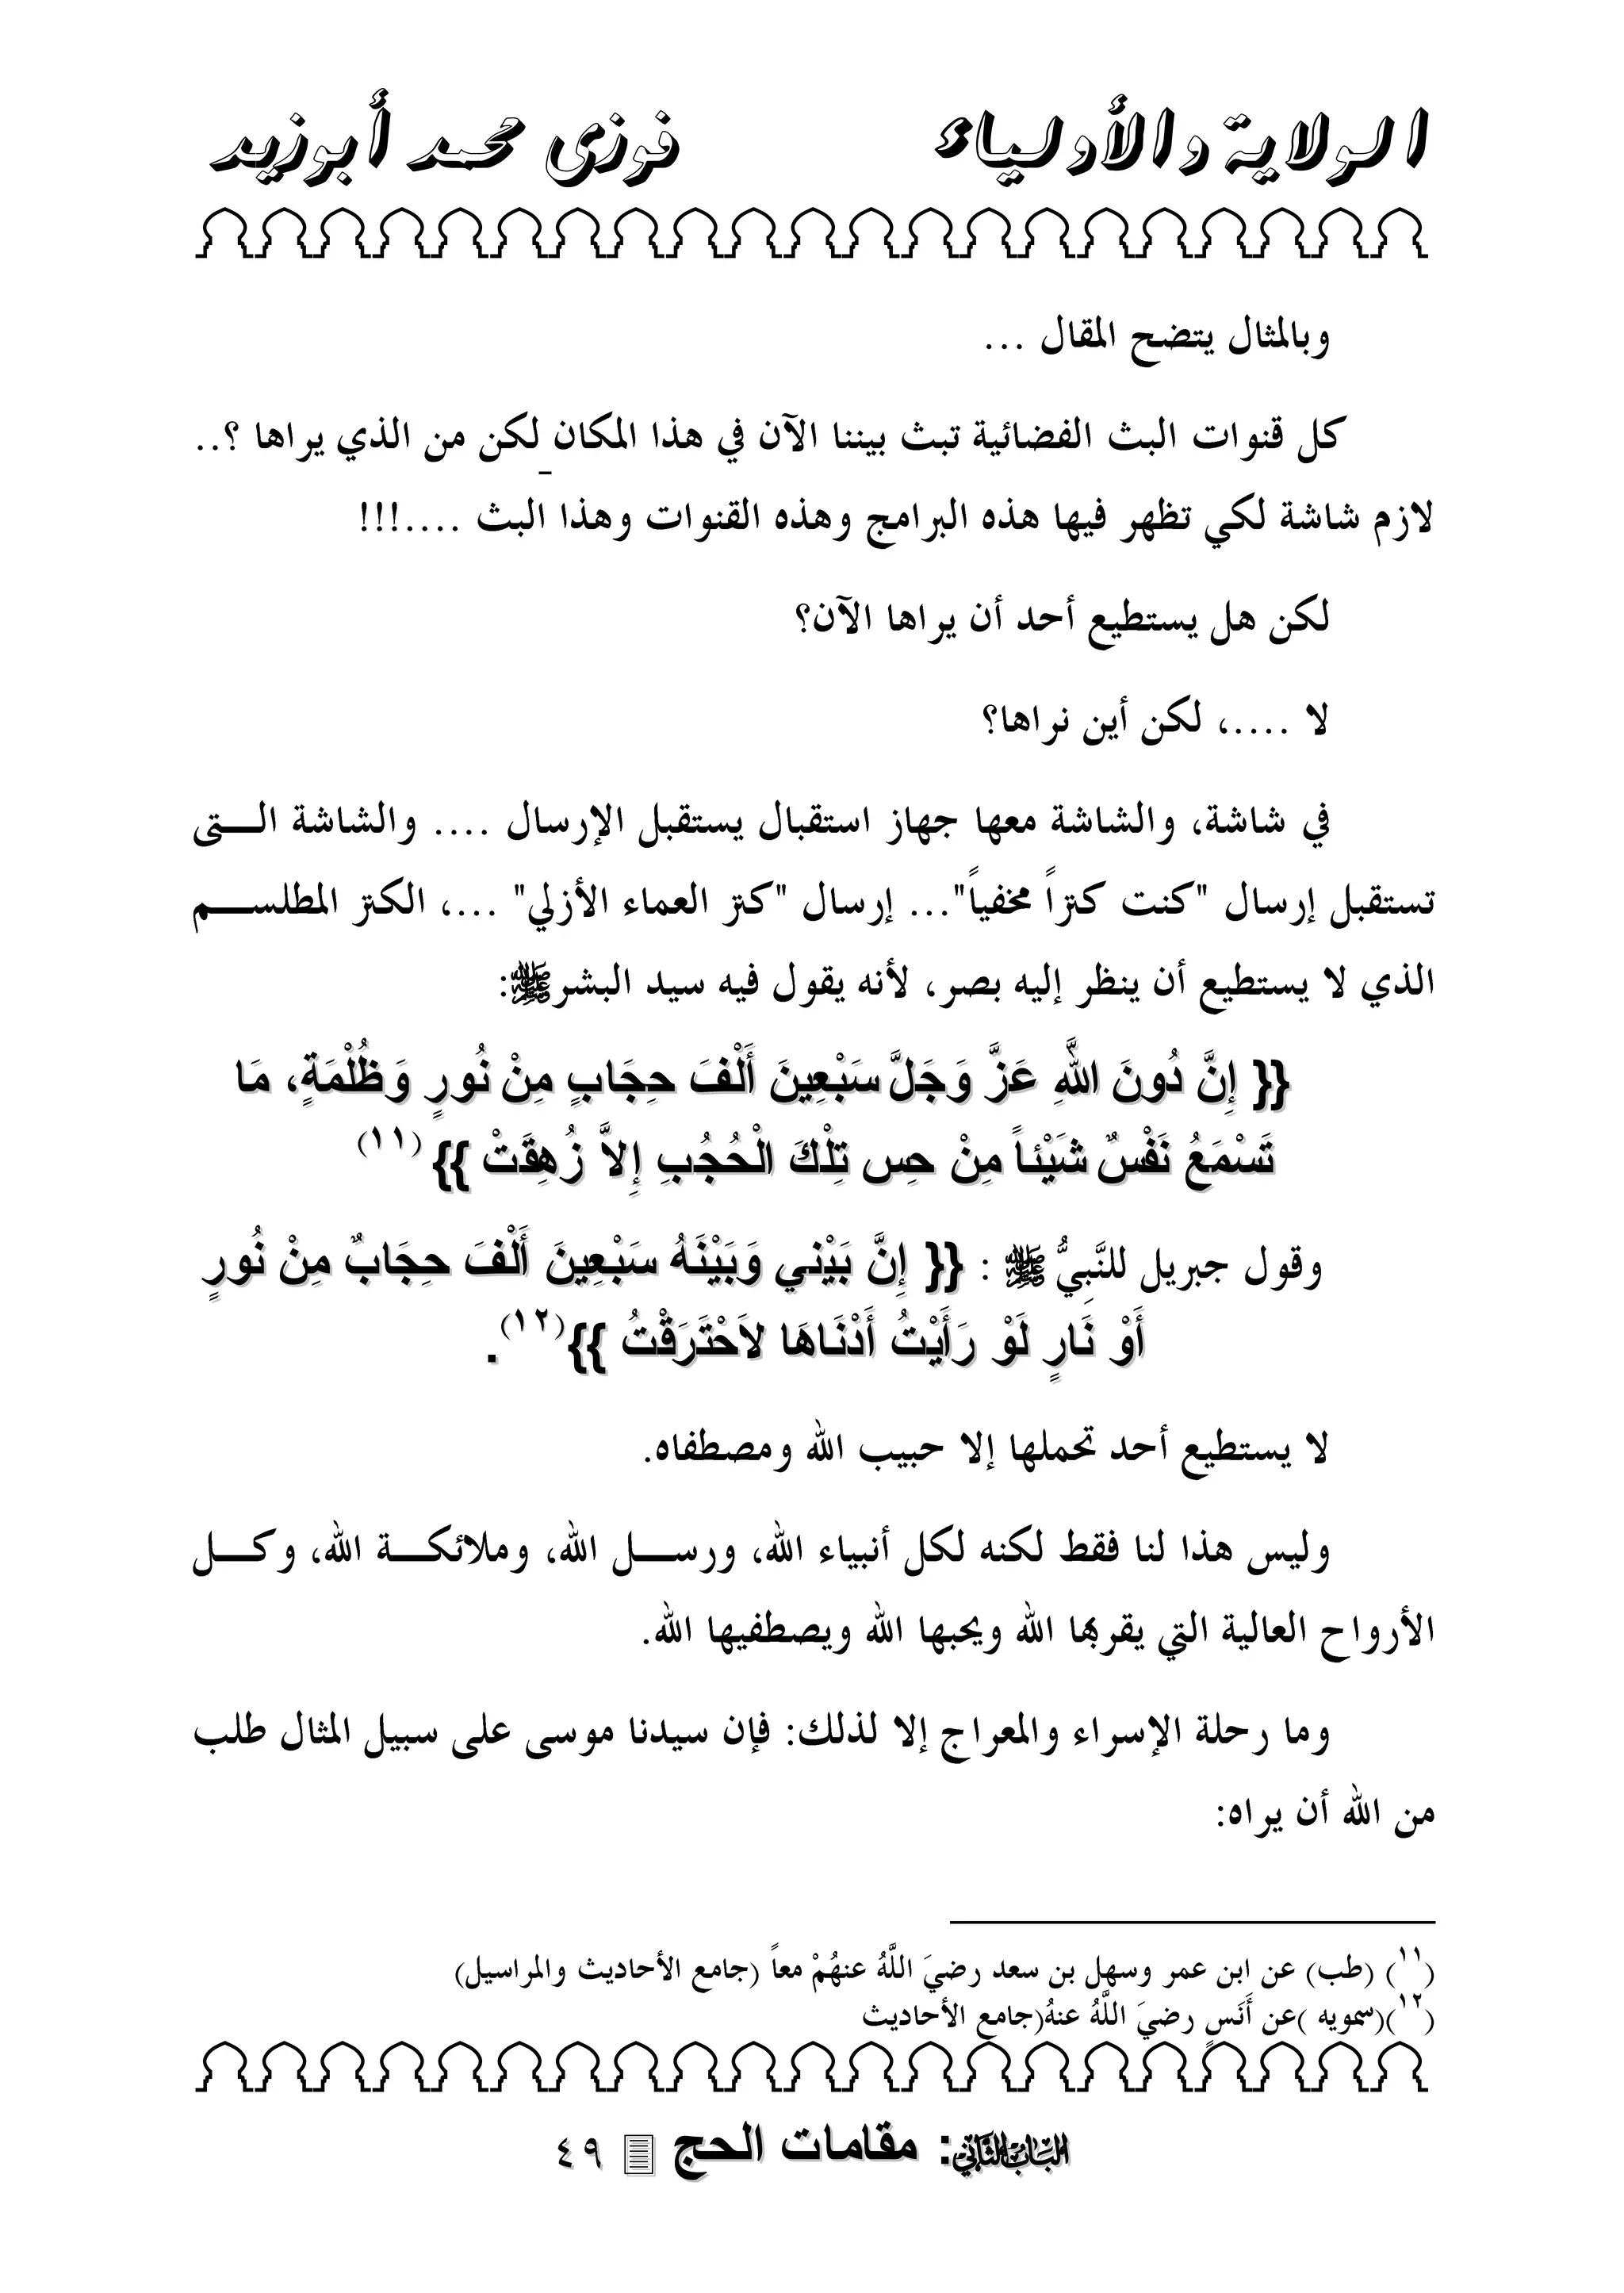 الولاية والأولياء فوزى محمد أبوزيد
وبالمثال يتضح المقال ...
كل قنوات البث الفضائية تبث بيننا الآن في هذا المكان لكن من الذي يراها ؟..
لازم شاشة لكي تظهر فيها هذه البرامج وهذه القنوات وهذا البث ....!!!
لكن هل يستطيع أحد أن يراها الآن؟
لا ....، لكن أين نراها؟
في شاشة، والشاشة معها جهاز استقبال يستقبل الإرسال .... والشاشة الـــتى
تستقبل إرسال "كنت كنزاً مخفياً"... إرسال "كنز العماء الأزلي" ...، الكنز المطلســـم
الذي لا يستطيع أن ينظر إليه بصر، لأنه يقول فيه سيد البشرﷺ:
{{ إِنَّ دُونَ اللَّهِ عَزَّ وَجَلَّ سَبْعِينَ أَلْفَ حِجَابٍ مِنْ نُورٍ وَظُلْمَةٍ، مَا
تَسْمَعُ نَفْسٌ شَيْئاً مِنْ حِس تِلْكَ الْحُجُبِ إِلاَّ زُهِقَتْ }} (١١)
وقول جبريل للنَّبِيُّ ﷺ : {{ إِنَّ بَيْنِي وَبَيْنَهُ سَبْعِينَ أَلْفَ حِجَابٌ مِنْ نُورٍ
أَوْ نَارٍ لَوْ رَأَيْتُ أَدْنَاهَا لاَحْتَرَقْتُ }}(١٢).
لا يستطيع أحد تحملها إلا حبيب الله ومصطفاه.
وليس هذا لنا فقط لكنه لكل أنبياء الله، ورســـل الله، وملائكـــة الله، وكـــل
الأرواح العالية التي يقربها الله ويحبها الله ويصطفيها الله.
وما رحلة الإسراء والمعراج إلا لذلك: فإن سيدنا موسى على سبيل المثال طلب
من الله أن يراه:
(١١) (طب) عن ابن عمر وسهل بن سعد رضيَ اللَّهُ عنهُمْ معاً (جامع الأحاديث والمراسيل)
(١٢)(سمويه )عن أَنَسٍ رضيَ اللَّهُ عنهُ(جامع الأحاديث
الباب الثاني: مقامات الحج ٤٩